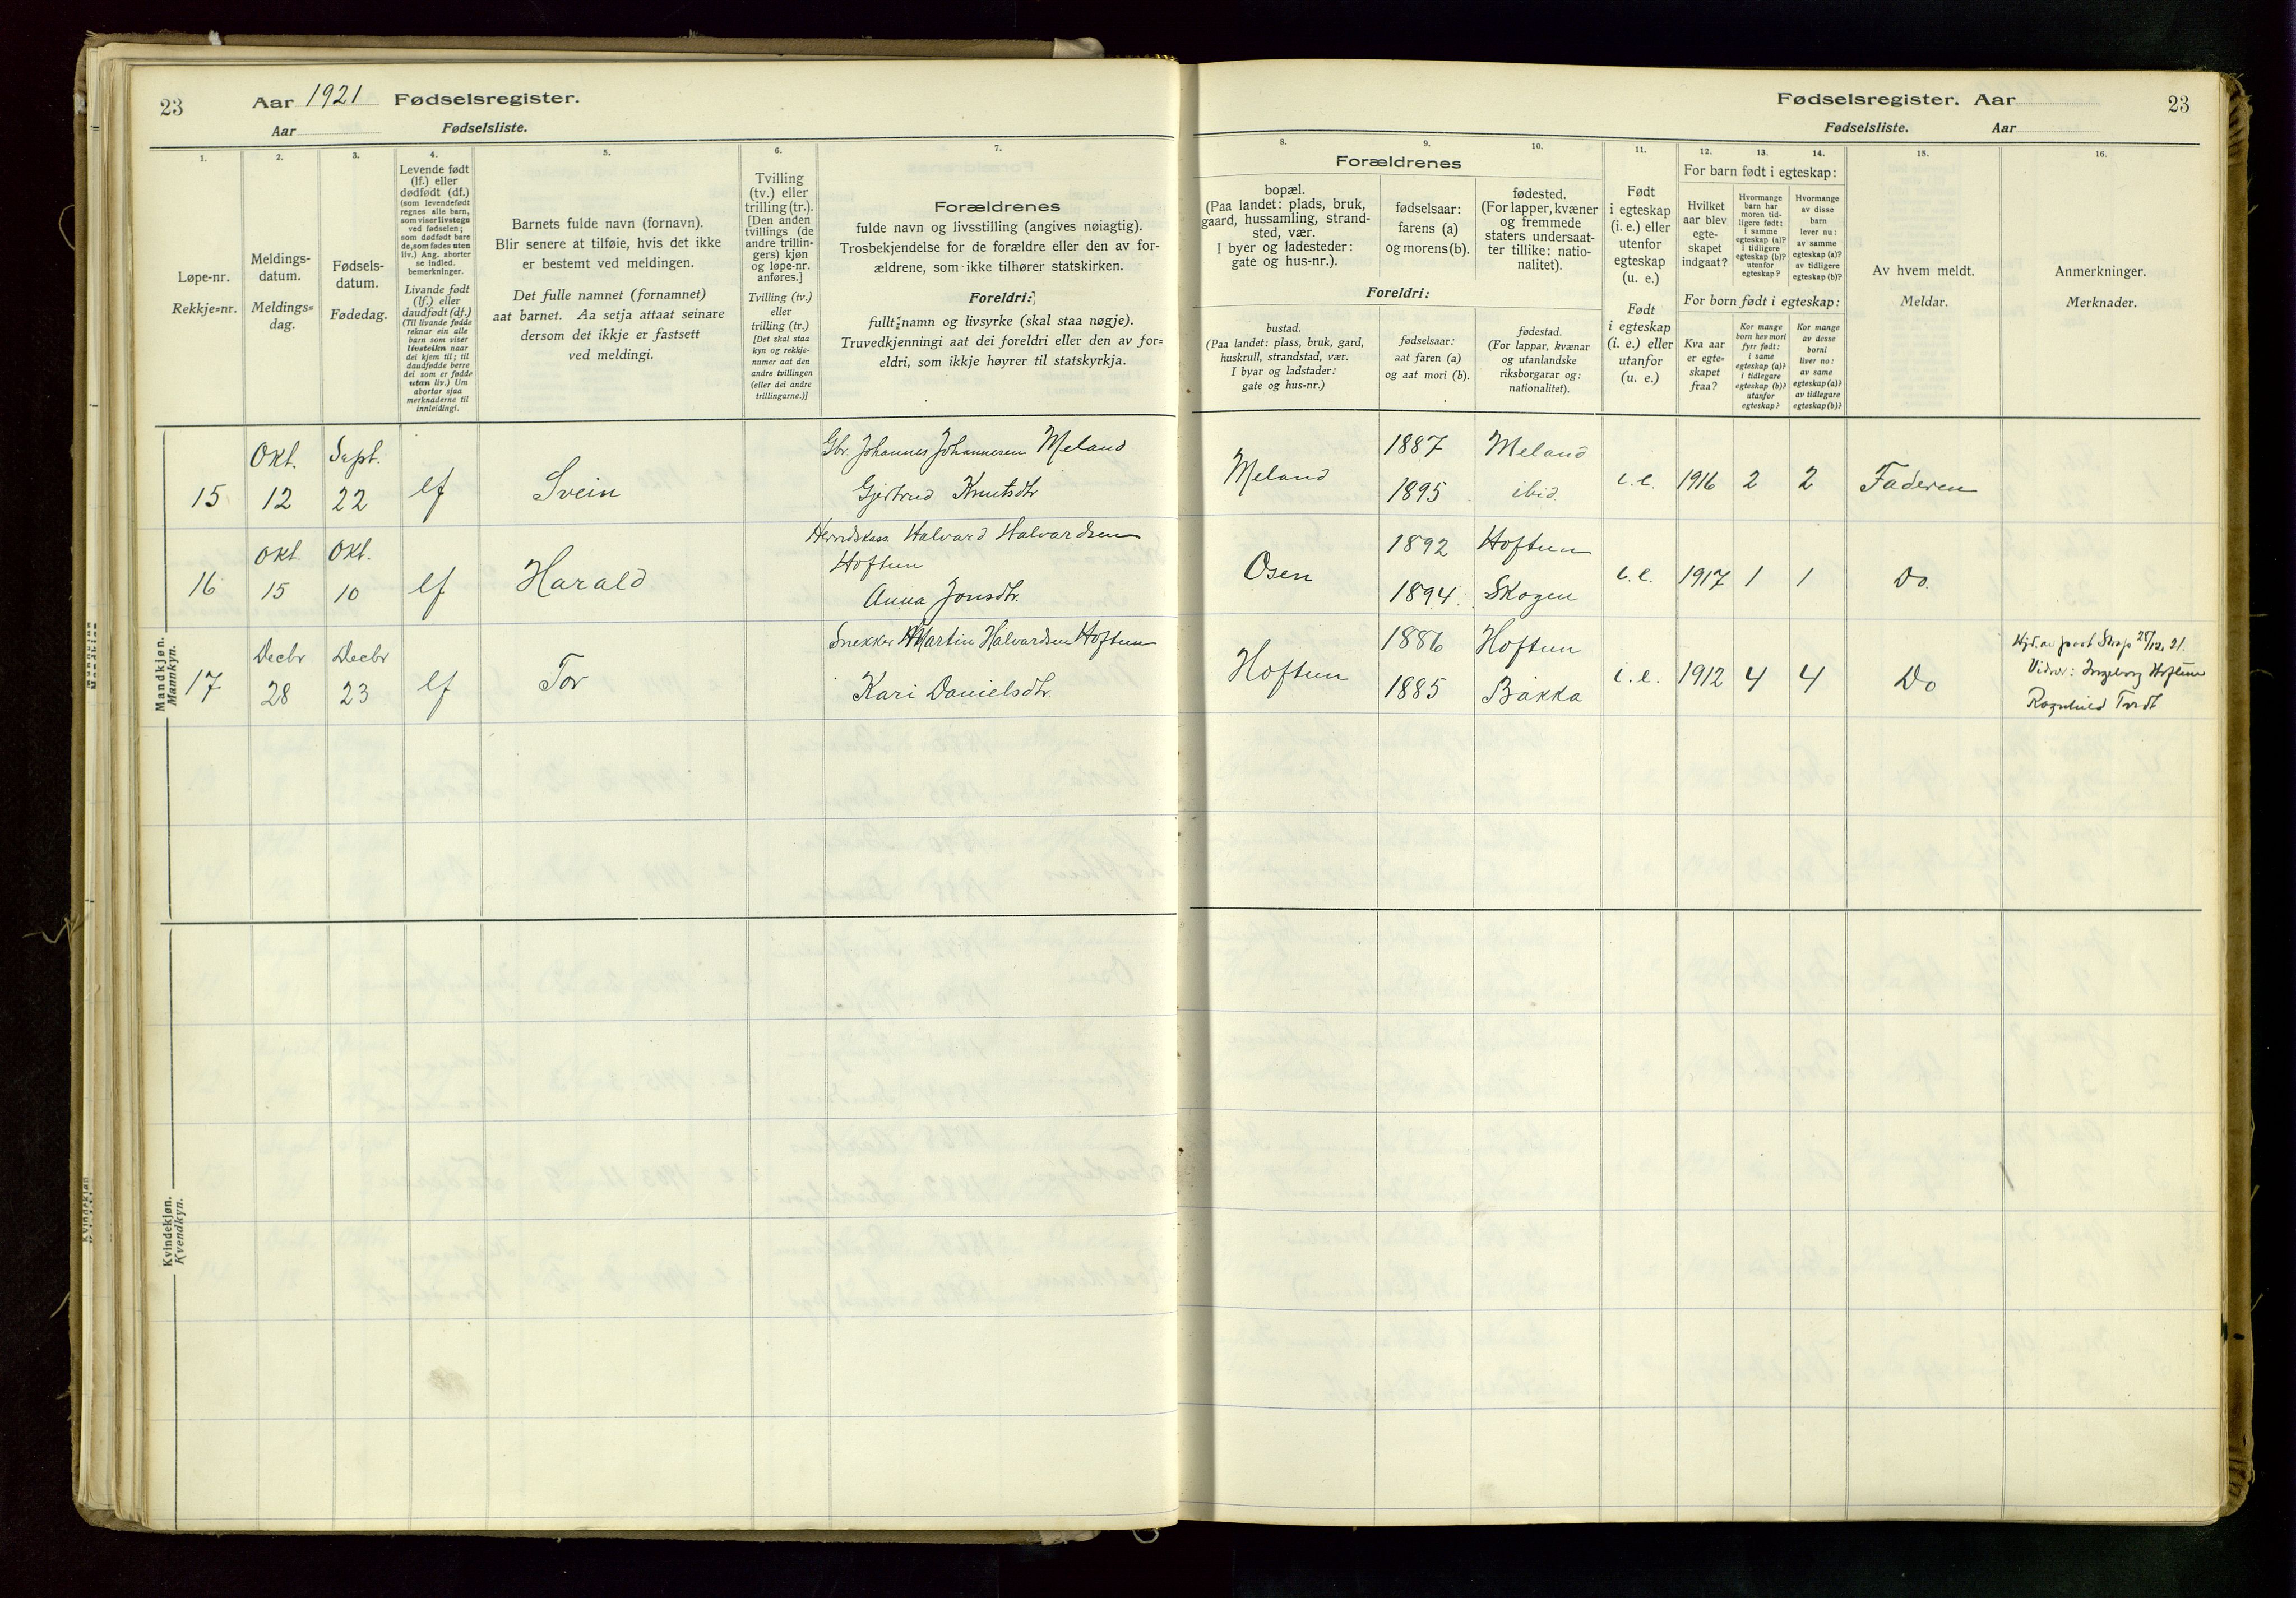 23
Aar 1921 Fødselsregister.
Aar Fødselsliste.
1.
Løpe-nr.
Rekkje=nr.
2.
Meldings-
datum.
Meldings=
dag.
3.
Fødsels-
datum.
Fødedag.
4.
Levende født
(lf.) eller
dødfødt (df.)
(som levendefødt
regnes alle barn,
som viser livstegn
ved fødselen;
som dødfødt bare
de, som fødes uten
liv.) Ang. aborter
se indled.
bemerkninger.
Livande født
(lf.) eller
daudfødt (df.)
(Til livande fødde
reknar ein alle
barn som viser
livsteikn naar
dei kjem til; til
daudfødde berre
dei som er fødde
utan liv.) Um
abortar sjaa
merknaderne til
innleidingi.
5.
Barnets fulde navn (fornavn).
Blir senere at tilføie, hvis det ikke
er bestemt ved meldingen.
Det fulle namnet (fornamnet)
aat barnet. Aa setja attaat seinare
dersom det ikkje er fastsett
ved meldingi.
6.
Tvilling
(tv.) eller
trilling (tr.).
[Den anden
tvillings (de
andre trillin-
gers) kjøn
og løpe-nr.
anføres.]
Tvilling (tv.)
eller
trilling (tr.)
[Det skal staa
kyn og rekkje-
numer aat den
andre tvillingen
(eller dei andre
trillingarne.)]
7.
Forældrenes
fulde navn og livsstilling (angives nøiagtig).
Trosbekjendelse for de forældre eller den av for-
ældrene, som ikke tilhører statskirken.
Foreldri:
fullt namn og livsyrke (skal staa nøgje).
Truvedkjenningi aat dei foreldri eller den av for=
eldri, som ikkje høyrer til statskyrkja.
Mandkjøn.
Mannkyn.
15 Okt. 12 Sept. 22 lf Svein
Gbr. Johannes Johannesen Meland
Gjertrud Knutsdtr
16 Okt. 15 Okt. 10 lf Harald
Herredskass. Halvard Halvardsen
Hoftun
Anna Jonsdtr.
17 Decbr 28 Decbr 23 lf Tor
Snekker Martin Halvardsen Hoftun
Kari Danielsdtr.
Kvindekjøn.
Kvendkyn.
Fødselsregister. Aar
23
Fødselsliste. Aar
8.
Forældrenes
bopæl.
(Paa landet: plads, bruk,
gaard, hussamling, strand-
sted, vær.
I byer og ladesteder:
gate og hus-nr.).
Foreldri:
bustad.
(Paa landet: plass, bruk, gard,
huskrull, strandstad, vær.
I byar og ladstader:
gate og hus=nr.)
9.
fødselsaar:
farens (a)
og morens (b).
fødselsaar:
aat faren (a)
og aat mori (b).
10.
fødested.
(For lapper, kvæner
og fremmede
staters undersaat-
ter tillike: natio-
nalitet).
fødestad.
(For lappar, kvænar
og utanlandske
riksborgarar og:
nationalitet).
11.
Født
i egteskap
(i. e.) eller
utenfor
egteskap
(u. e.)
Født
i egteskap
(i. e.) eller
utanfor
(u. e.)
12. 13. 14.
For barn født i egteskap:
Hvilket
aar blev
egte-
skapet
indgaat?
Hvormange
barn har
moren tid-
ligere født:
i samme
egteskap (a)?
i tidligere
egteskap (b)?
utenfor
egteskap?
Hvormange
av disse
barn
lever nu:
av samme
egteskap (a)?
av tidligere
egteskap (b)?
For born født i egteskap:
Kva aar
er egte=
skapet
fraa?
Kor mange
born hev mori
fyrr født:
i same
egteskap (a)?
i tidlegare
egteskap (b)?
utanfor
egteskap?
Kor mange
av desse
borni
liver no:
av same
egteskap (a)?
av tidlegare
egteskap (b)?
15.
Av hvem meldt.
Meldar.
16.
Anmerkninger.
Merknader.
Meland 1887 Meland
1895 ibid. i. e. 1916 2 2 Faderen
Osen 1892 Hoftun
1894. Skogen i. e. 1917 1 1 Do.
Hoftun 1886 Hoftun
1885 Bakka i. e. 1912 4 4 Do
Hjd. av prest 28/12. 21.
Vidner: Ingeborg Hoftun
Ragnhild